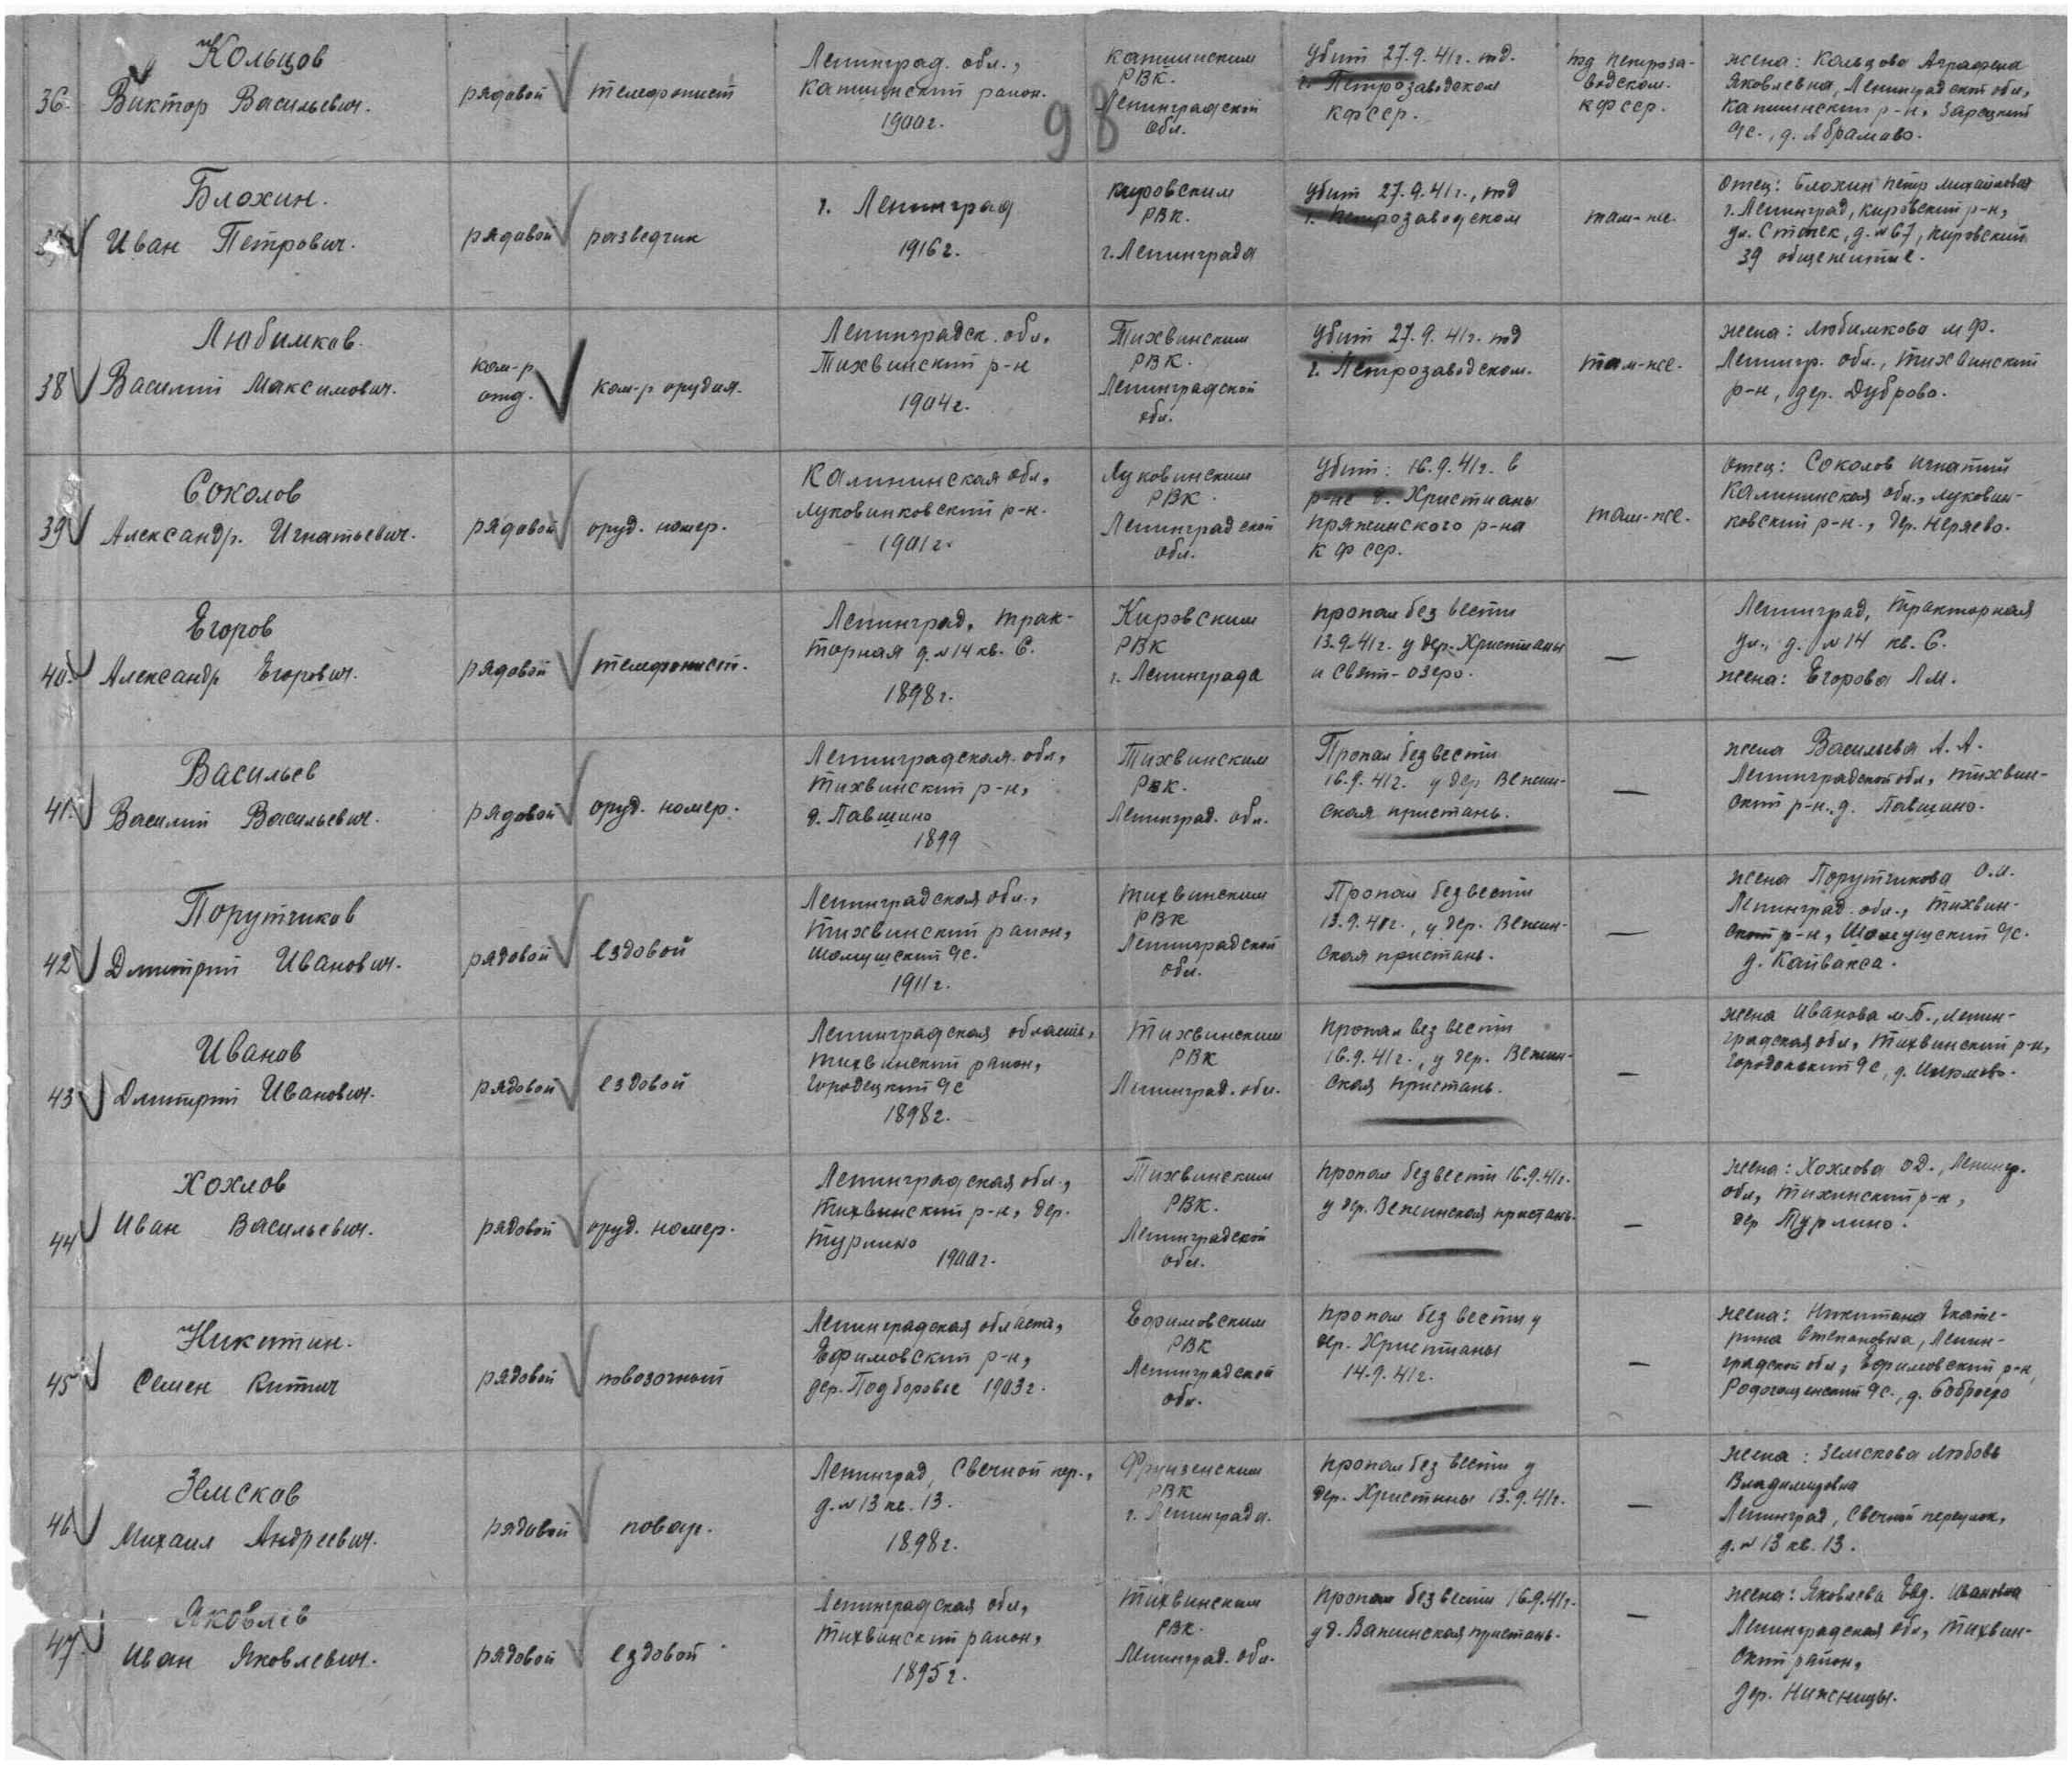 36. Кольцов
Виктор Васильевич.
рядовой
телефонист
Ленинград. обл.,
Капшинский район.
1900г.
капшинским
РВК.
Ленинградской
обл.
Убит 27.9.41г. под
г. Петрозаводском
КФССР.
под Петроза-
водском.
КФССР.
жена: Кольцова Аграфена
Яковлевна, Ленинградской обл,
Капшинский р-н, Зарецкий
с., д. Абрамово.
98
Блохин.
Иван Петрович.
рядовой
разведчик
г. Ленинград
1916г.
кировским
РВК.
г. Ленинграда
Убит 27.9.41г., под
г. Петрозаводском
там-же.
Отец: Блохин Петр Михайлович
г. Ленинград, Кировский р-н,
ул. Стачек, д. № 67, Кировский
39 общежитие.
38 Любимков.
Василий Максимович.
ком-р
отд.
ком-р орудия.
Ленинградск. обл,
Тихвинский р-н
1904г.
Тихвинским
РВК.
Ленинградской
обл.
Убит 27.9.41г. под
г. Петрозаводском.
там-же.
жена: Любимкова М Ф.
Ленингр. обл., Тихвинский
р-н, дер. Дуброво.
39 Соколов
Александр. Игнатьевич.
рядовой
оруд. номер.
Калининская обл,
Луковниковский р-н.
1901г.
Луковинским
РВК.
Ленинградской
обл.
Убит: 16.9.41г. в
р-не д. Христианы
Пряжинского р-на
КФССР.
там-же.
Отец: Соколов Игнатий
Калининская обл., Луковни-
ковский р-н., дер. Неряево.
40. Егоров
Александр Егорович.
рядовой
телефонист.
Ленинград, Трак-
торная д. № 14 кв. 6.
1898г.
Кировским
РВК
г. Ленинграда
пропал без вести
13.9.41г. у дер. Христианы
и Свят-озеро.
—
Ленинград, Тракторная
ул., д. № 14 кв. 6.
жена: Егорова Л М.
41. Васильев
Василий Васильевич.
рядовой
оруд. номер.
Ленинградская. обл,
Тихвинский р-н,
д. Павшино
1899
Тихвинским
РВК.
Ленинград. обл.
Пропал без вести
16.9.41г. у дер Вехин-
ская пристань.
—
жена Васильева А. А.
Ленинградской обл, Тихвин-
ский р-н. д. Павшино.
42 Порутчиков
Дмитрий Иванович.
рядовой
ездовой
Ленинградская обл.,
Тихвинский район,
Шомушский с.
1911г.
Тихвинским
РВК
Ленинградской
обл.
Пропал без вести
13.9.41г., у дер. Вехин-
ская пристань.
—
жена Порутчикова О.И.
Ленинград. обл., Тихвин-
ский р-н, Шомушский с.
д. Кайвакса.
43 Иванов
Дмитрий Иванович.
рядовой
ездовой
Ленинградская область,
Тихвинский район,
Городецкий с
1898г.
Тихвинским
РВК
Ленинград. обл.
пропал без вести
16.9.41г., у дер. Вехин-
ская пристань.
—
жена Иванова М.Б., Ленин-
градская обл, Тихвинский р-н,
44 Хохлов
Иван Васильевич.
рядовой
оруд. номер.
Ленинградская обл.,
Тихвинский р-н, дер.
Турлино
1900г.
Тихвинским
РВК.
Ленинградской
обл.
пропал без вести 16.9.41г.
у дер. Вехинская пристань.
—
жена: Хохлова О Д., Ленингр.
обл, Тихинский р-н,
дер Турлино.
45 Никитин.
Семен Китич
рядовой
повозочный
Ленинградская область,
Ефимовский р-н,
дер. Подборовье 1903г.
Ефимовским
РВК
Ленинградской
обл.
пропал без вести у
дер. Христианы
14.9.41г.
—
жена: Никитина Екате-
рина Степановна, Ленин-
градской обл, Ефимовский р-н,
46 Земсков
Михаил Андреевич.
рядовой
повар.
Ленинград, Свечной пер.,
д. № 13 кв. 13.
1898г.
Фрунзенским
РВК
г. Ленинграда.
пропал без вести у
дер. Христианы 13.9.41г.
—
жена: Земскова Любовь
Владимировна
Ленинград, Свечной переулок,
д. № 13 кв. 13.
47. Яковлев
Иван Яковлевич.
рядовой
ездовой
Ленинградская обл,
Тихвинский район,
1895г.
Тихвинским
РВК.
Ленинград. обл.
пропал без вести 16.9.41г.
у д. Вахинская пристань.
—
жена: Яковлева Евд. Ивановна
Ленинградская обл, Тихвин-
ский район,
дер. Нижницы.